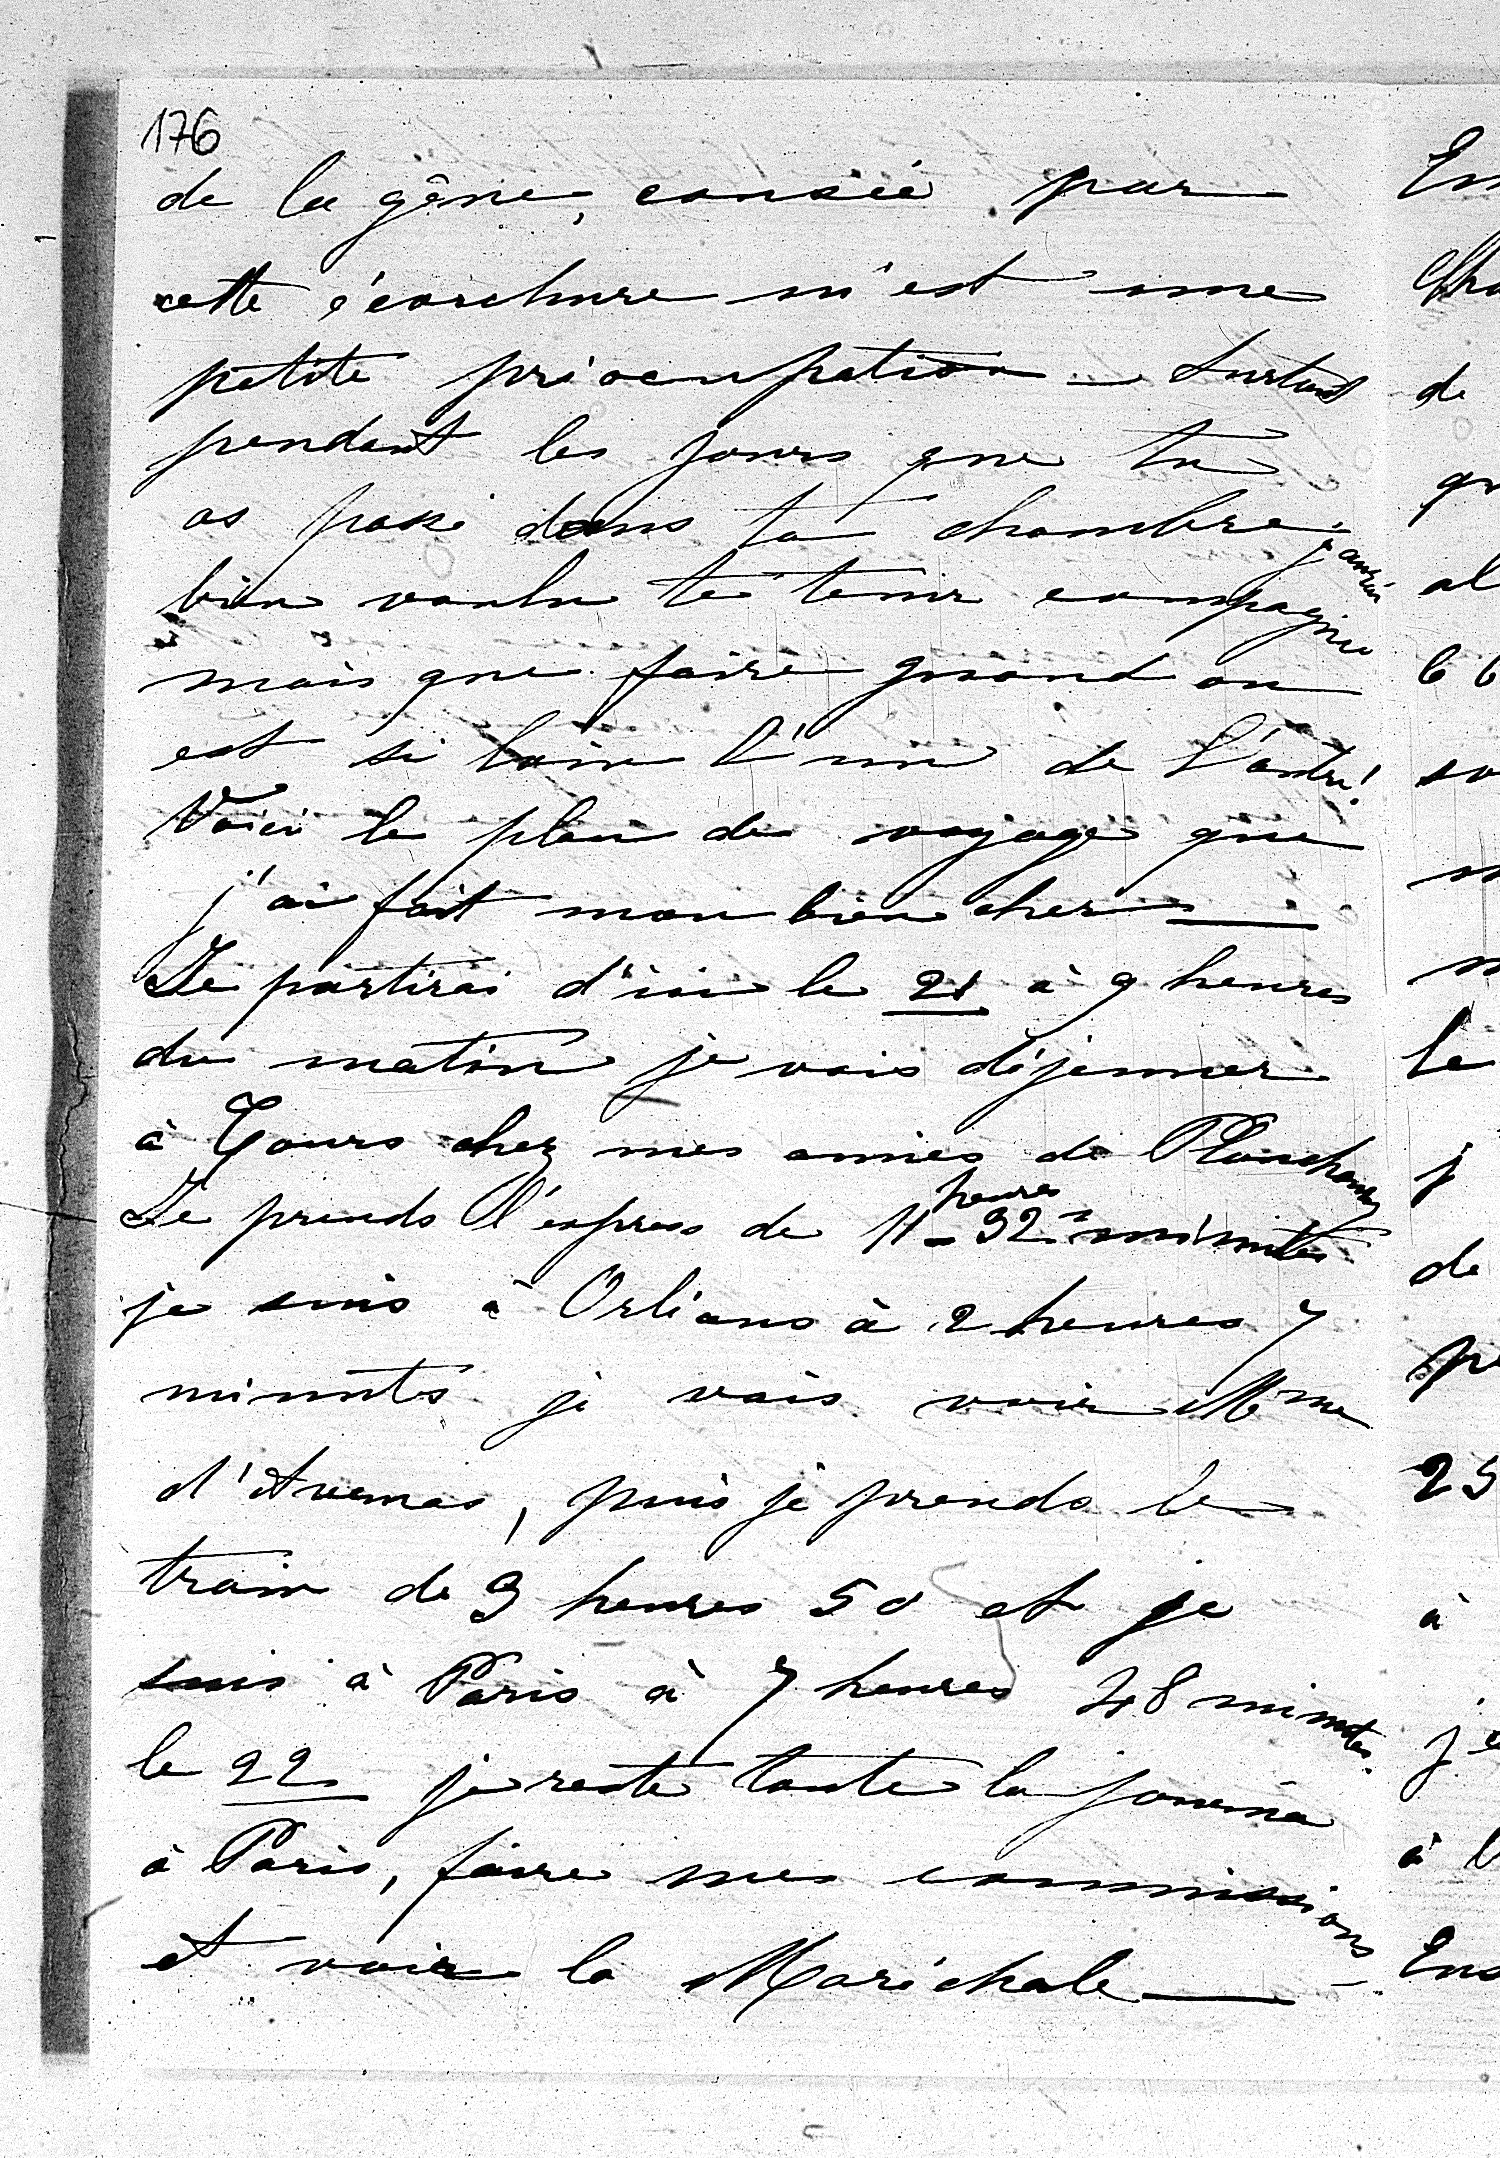 176
de la gêne, causée par
cette écorchure m'est une
petite préocupation — Surtout
pendant les jours que tu
as passé dans ta chambre, j'aurais
bien voulu te tenir compagnie
mais que faire quand on
est si loin l'un de l'autre!
Voici le plan de voyage que
j'ai fait mon bien cher —
Je partirai d'ici le 21 à 9 heures
du matin je vais déjeuner
à Tours chez mes amies de
Je prends l'express de 11 heures 32 minutes
je suis à Orléans à 2 heures 7
minutes je vais voir Mme
d'Avemas, puis je prends le
train de 3 heures 50 et je
suis à Paris à 7 heures 48 minutes.
le 22 je reste toute la journée
à Paris, faire mes commissions
et voir la Maréchale —
Em
de
qu
al
so
le
j'
de
25
à
je
à l
Ens